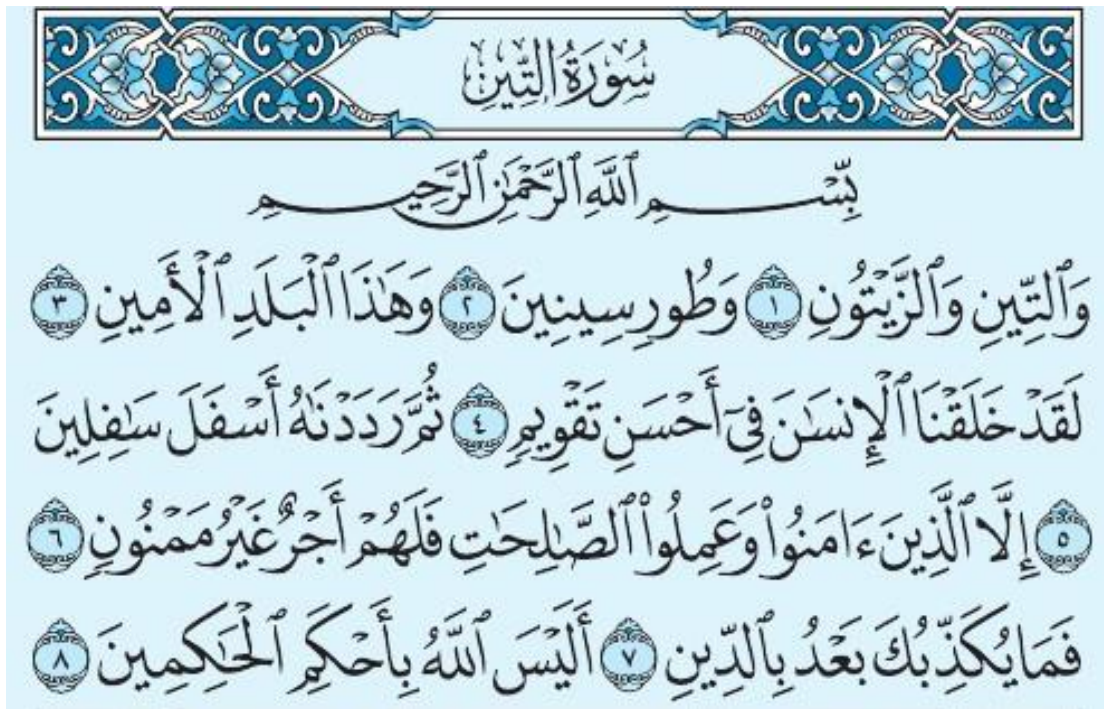 سُورَةُ التِّينِ
بِّسۡمِ ٱللَّهِ ٱلرَّحۡمَٰنِ ٱلرَّحِيمِ
وَٱلتِّينِ وَٱلزَّيۡتُونِ ١ وَطُورِ سِينِينَ ٢ وَهَٰذَا ٱلۡبَلَدِ ٱلۡأَمِينِ ٣
لَقَدۡ خَلَقۡنَا ٱلۡإِنسَٰنَ فِيٓ أَحۡسَنِ تَقۡوِيمٖ ٤ ثُمَّ رَدَدۡنَٰهُ أَسۡفَلَ سَٰفِلِينَ
٥ إِلَّا ٱلَّذِينَ ءَامَنُواْ وَعَمِلُواْ ٱلصَّٰلِحَٰتِ فَلَهُمۡ أَجۡرٌ غَيۡرُ مَمۡنُونٖ ٦
فَمَا يُكَذِّبُكَ بَعۡدُ بِٱلدِّينِ ٧ أَلَيۡسَ ٱللَّهُ بِأَحۡكَمِ ٱلۡحَٰكِمِينَ ٨